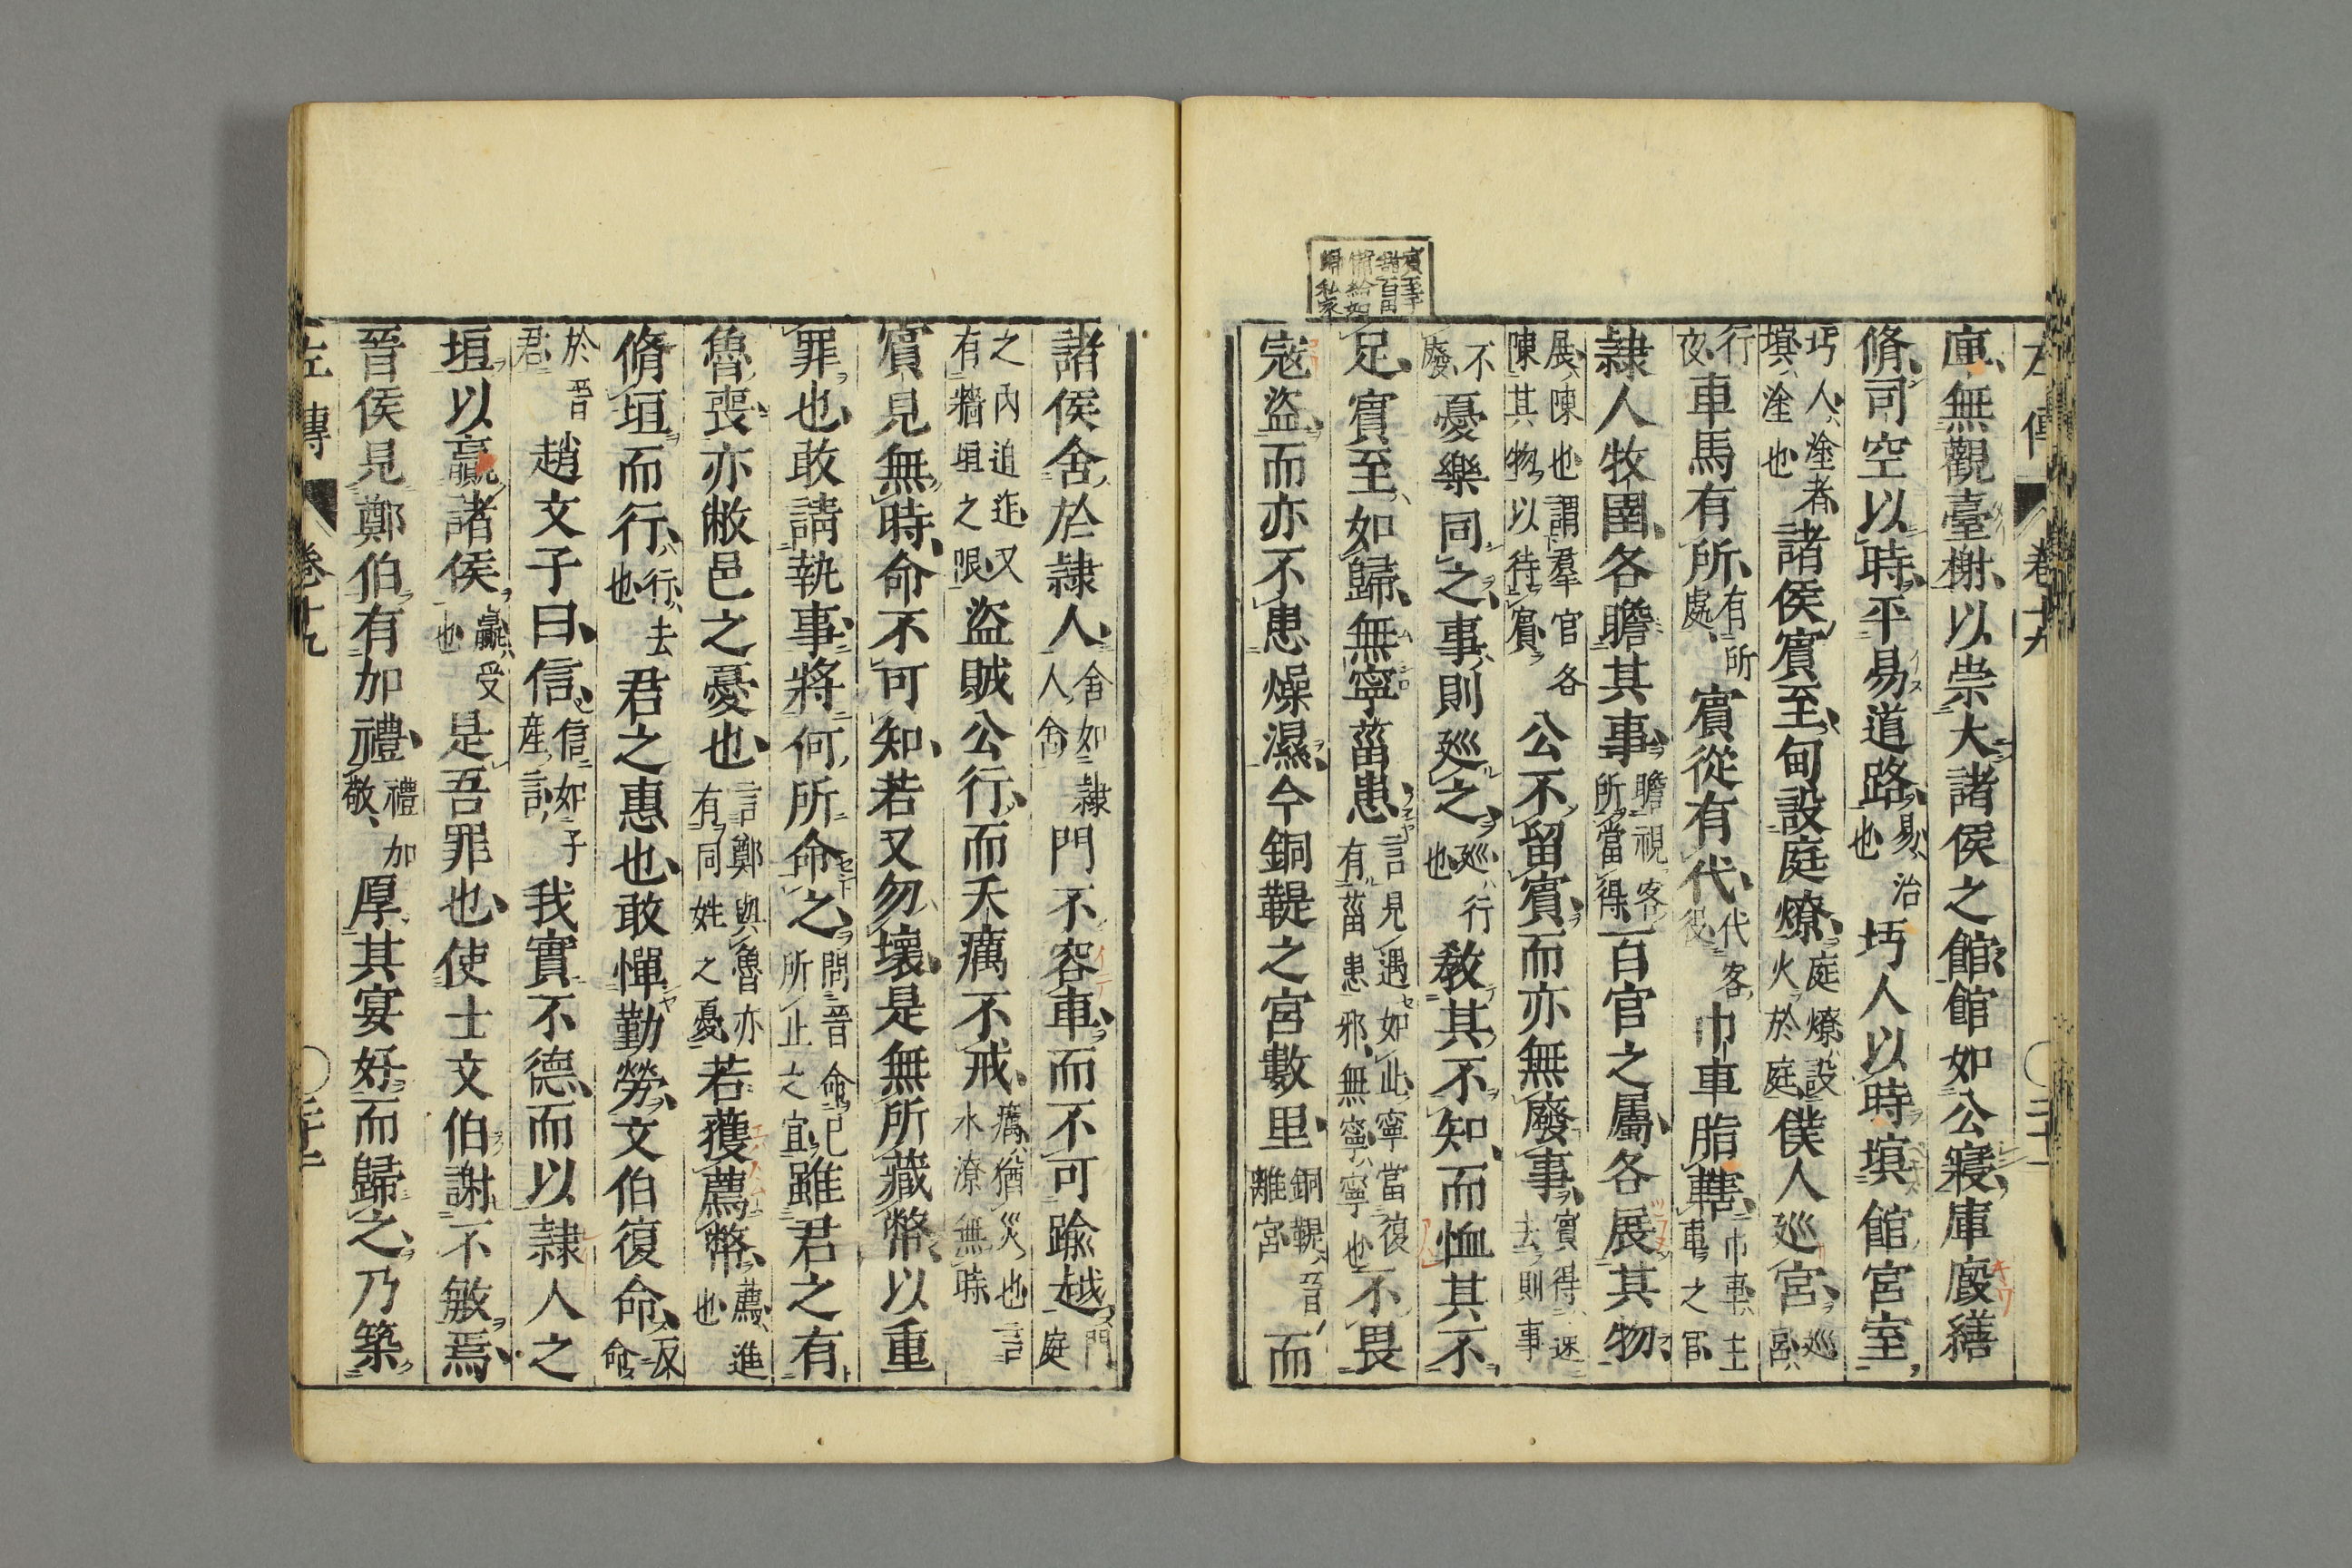 庳無觀臺榭以崇大諸侯之館館如公寢庫廐繕
脩司空以時平易道路易治也圬人以時塓館宮室
圬人塗者塓塗也諸侯賓至甸設庭燎庭燎設火於庭僕人巡宮巡宮
行夜車馬有所有所處賓從有代代客役巾車脂轄巾車主車之官
隷人牧圉各瞻其事瞻視客所當得百官之屬各展其物
展陳也謂羣官各陳其物以待賓公不留賓而亦無廢事賓得速去則事
不廢憂樂同之事則巡之巡行也教其不知而恤其不
足賓至如歸無寧菑患言見遇如此寧當復有菑患邪無寧寧也不畏
寇盜而亦不患燥濕今銅鞮之宮數里銅鞮晉離宮而
賓至
百官
備給如
歸私家
諸侯舍於隷人舍如隷人舍門不容車而不可踰越門庭
之內迫迮又有牆垣之限盜賊公行而夭癘不戒癘猶災也言水潦無時
賓見無時命不可知若又勿壞是無所藏幣以重
罪也敢請執事將何所命之問晉命己所止之宜雖君之有
魯喪亦敝邑之憂也言鄭與魯亦有同姓之憂若獲薦幣薦進也
脩垣而行行去也君之惠也敢憚勤勞文伯復命反命
於晉君趙文子曰信信如子產言我實不德而以隷人之
垣以贏諸侯贏受也是吾罪也使士文伯謝不敏焉
晉侯見鄭伯有加禮禮加敬厚其宴好而歸之乃築
左傳
卷十九